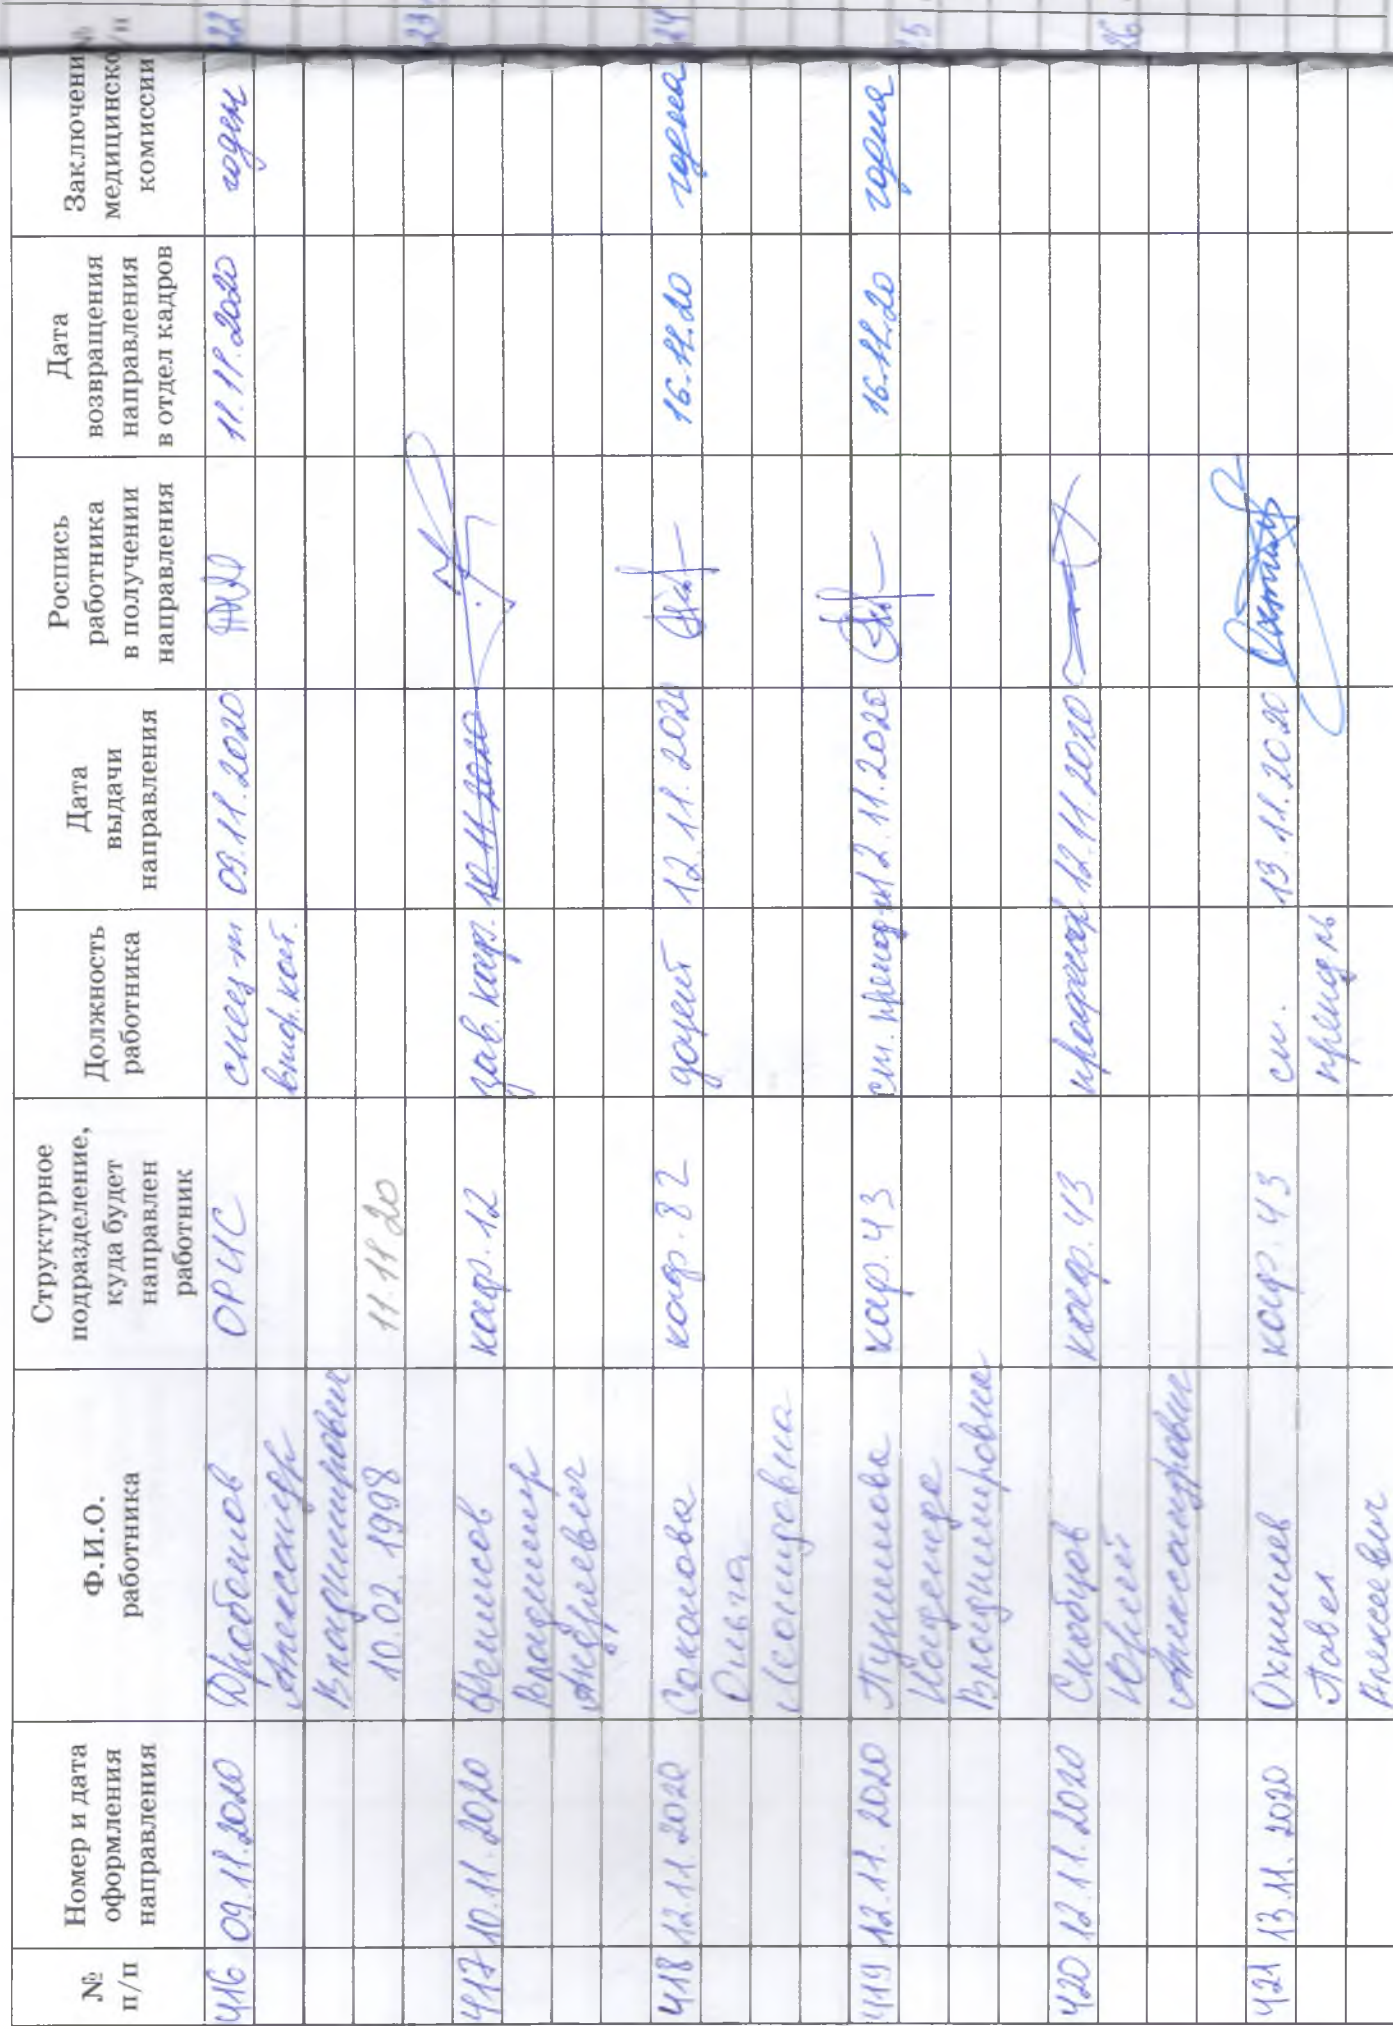 №
п/п
Номер и дата
оформления
направления
Ф.И.О.
работника
Структурное
подразделение,
куда будет
направлен
работник
Должность
работника
Дата
выдачи
направления
Роспись
работника
в получении
направления
Дата
возвращения
направления
в отдел кадров
Заключени
медицинско
комиссии
416 09.11.2020
Александр
Владимирович
10.02.1998
ОРИС
11.11.20
специ-т
09.11.2020
11.11.2020
годен
417 10.11.2020
Денисов
Владимир
Андреевич
каф. 12
зав. каф.
10.11.2020
418 12.11.2020
Соколова
Ольга
Леонидовна
каф. 82
доцент
12.11.2020
16.11.20
годна
419 12.11.2020
Надежда
Владимировна
каф. 43
ст. препод-ль
12.11.2020
16.11.20
годна
420 12.11.2020
Скобцов
Юрий
Александрович
каф. 43
профессор
12.11.2020
421 13.11.2020
Охтилев
Павел
Алексеевич
каф. 43
ст.
препод-ль
13.11.2020
22
23
24
25
26